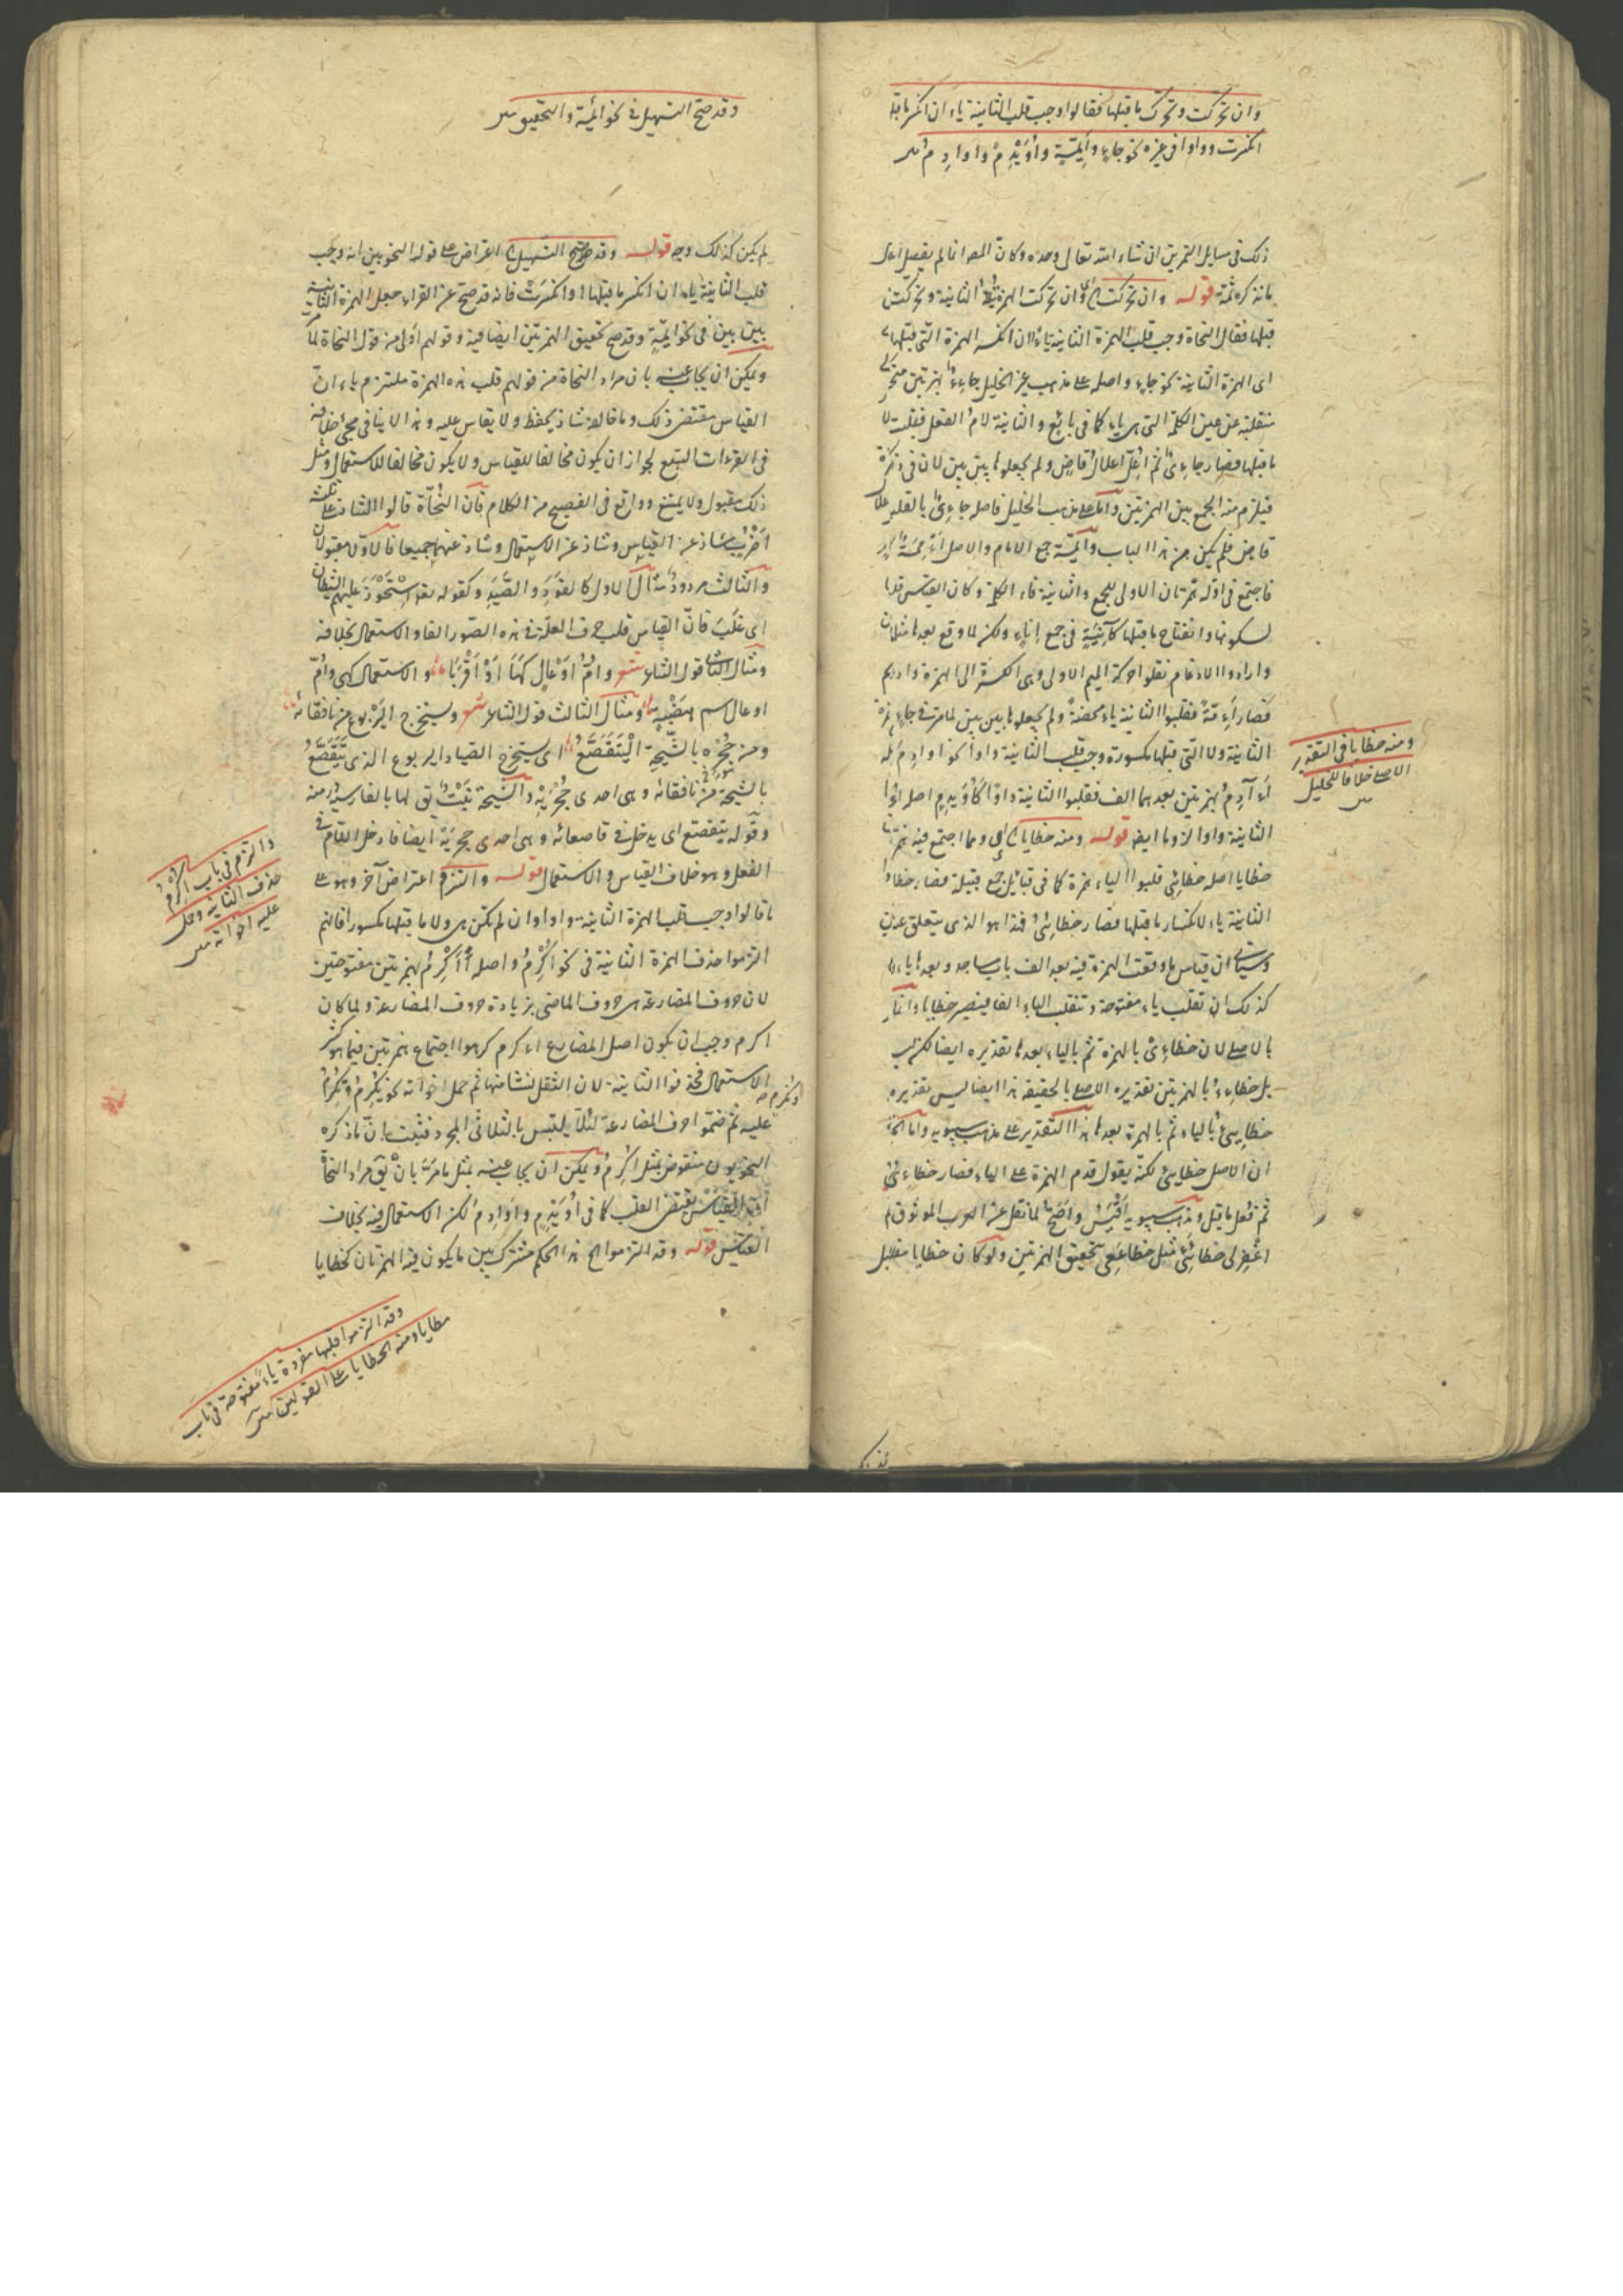 وان تحركت وتحرك ماقبلها فقالوا وجب قلب الثانية ياء ان انكسر ماقبلها
انكسرت وواوا فى غيره نحو جاءٍ وأيمّةٍ وأُوَيْدِمٌ واوادِم
ذلك فى مسايل التمرين ان شاء الله تعالى وحده وكان المصـ انما لم يفصل
قوله وان تحركت اى وان تحركت الهمزة الثانية وتحركت
قبلها فقال النحاة وجب قلب الهمزة الثانية ياء ان انكسر الهمزة التى قبلها
اى الهمزة الثانية نحو جاءٍ واصله على مذهب غير الخليل جاءِءٌ بهمزتين
منقلبة عن عين الكلمة التى هى ياء كما فى بائع والثانية لام الفعل فقلبت
ماقبلها فصار جاءِىٌ ثم اعلّ اعلال قاضٍ ولم يجعلوها بين بين لان فى
فيلزم منه الجمع بين الهمزتين واما على مذهب الخليل فاصله جاءِىٌ بالقلب
قاضٍ فلم يكن من هذا الباب وايمّة جمع الامام والاصل أَءْمِمَة
فاجتمع فى اوّله همزتان الاولى للجمع والثانية فاء الكلمة وكان القياس قلبها
لسكونها وانفتاح ماقبلها كآنِيَةٍ فى جمع اناءٍ ولكن لما وقع بعدها مثلان
وارادوا الادغام نقلوا حركة الميم الاولى وهى الكسرة الى الهمزة وادغم
فصار أَءِمّةٌ فقلبوا الثانية ياء محضةً ولم يجعلوها بين بين لما مرّ فى جاءٍ
الثانية ولا التى قبلها مكسورة وجب قلب الثانية واوا نحو اوادم
أَءَآدِمُ بهمزتين بعدهما الف فقلبوا الثانية واوًا كأُوَيدِم اصله
الثانية واوا لزوما ايض قوله ومنه خطايا اى ومما اجتمع فيه
خطايا اصله خطايِئُ قلبوا الياء همزة كما فى قبائل جمع قبيلة فصار
الثانية ياء لانكسار ماقبلها فصار خطائِىُ فهذا هو الذى يتعلق
وسيأتى ان قياس ما وقعت الهمزة فيه بعد الف باب مساجد وبعدها ياء
كذلك ان تقلب ياء مفتوحة وتنقلب الياء الفا فيصير خطايا وانما
بالاصلى لان خطاءِىُ بالهمزة ثم بالياء بعدها تقديره ايضا لكن ليس
بل خطاءِءُ بالهمزتين تقديره الاصلى بالحقيقة هذا ايضا ليس تقديره
خطايِئُ بالياء ثم بالهمزة بعدها هذا التقدير على مذهب سيبويه واما
ان الاصل خطايِئُ لكنه يقول قدم الهمزة على الياء فصار خطاءِىُ
ثم فعل ما قيل ومذهب سيبويه أَقْيَسُ واصحّ لما نقل عن العرب الموثوق
اغفر لى خطائِئى مثل خطاعِعى بتحقيق الهمزتين ولو كان خطايا مقلب
ومنه خطايا فى التقدير
الاصلى خلافا للخليل
وقد صح التسهيل فى نحو ائمّة والتحقيق
لم يكن كذلك وجه قوله وقد صح التسهيل اى اعتراض على قول النحويين انه وجب
قلب الثانية ياء ان انكسر ماقبلها او انكسرت فانه قد صح عن القراء جعل الهمزة الثانية
بين بين فى نحو ايمّة وقد صح تحقيق الهمزتين ايضا فيه وقولهم اولى من قول النحاة
ويمكن ان يجاب عنه بان مراد النحاة من قولهم قلب هذه الهمزة ملتزم ياء ان
القياس مقتض ذلك وما خالفه شاذ يحفظ ولا يقاس عليه وهذا لا ينافى مجئ خلافه
فى القراءات السبع لجواز ان يكون مخالفا للقياس ولا يكون مخالفا للاستعمال ومثل
ذلك مقبول ولا يمتنع وواقع فى الفصيح من الكلام فان النحاة قالوا الشاذ على ثلثة
اضرب شاذ عن القياس وشاذ عن الاستعمال وشاذ عنهما جميعا فالاولان مقبولان
والثالث مردود مثال الاول كالقَوَدِ والصَّيَدِ وكقوله تعـ استَحْوَذَ عليهم الشيطان
اى غلب فان القياس قلب حرف العلة فى هذه الصور الفا والاستعمال بخلافه
ومثال الثانى قول الشاعر شعر وأمُّ أوْعالٍ كَهَا أوْ أَقْرَبَا والاستعمال كهى وامّ
اوعال اسم هَضْبةٍ ومثال الثالث قول الشاعر شعر ويستخرج اليربوع من نافقائه
ومن جُحْره بالشيحة اليتقصّع اى يستخرج الصياد اليربوع الذى يتقصّع
بالشيحة من نافقائه وهى احدى جُحْرَيْه والشيحة نبتٌ يق لها بالفارسية
وقوله يتقصّع اى يدخل فى قاصعائه وهى احدى جحريه ايضا فادخل اللام فى
الفعل وهو خلاف القياس والاستعمال قوله والتزم اعتراض آخر وهو على
ما قالوا وجب قلب الهمزة الثانية واوا وان لم تكن هى ولا ماقبلها مكسورا فانهم
التزموا حذف الهمزة الثانية فى نحو أُكْرِمُ واصله أُأَكْرِمُ بهمزتين مفتوحتين
لان حروف المضارعة هى حروف الماضى بزيادة حروف المضارعة ولما كان
اكرم وجب ان يكون اصل المضارع اءكرم كرهوا اجتماع همزتين فيما هو كثير
الاستعمال فحذفوا الثانية لان الثقل نشا منها ثم حمل اخواته نحو يُكرِمُ وتُكرِمُ
ونُكرِم
عليه ثم ضمّوا حرف المضارعة لئلا يلتبس بالثلاثى المجرد فثبت ان ما ذكره
النحويون منقوض بمثل اُكرِمُ ويمكن ان يجاب عنه بمثل ما مرّ بان يق مراد النحاة
ان القياس يقتض القلب كما فى أُوَيْدِمٍ واوادِمَ لكن الاستعمال فيه بخلاف
القياس قوله وقد التزموا الخ هذا الحكم مشترك بين ما يكون فيه الهمزتان كخطايا
والتزم فى باب اُكرِمُ
حذف الثانية وحمل
عليه اخواته
وقد التزموا قلبها مفردة ياء مفتوحة فى باب
مطايا ومنه خطايا على القولين